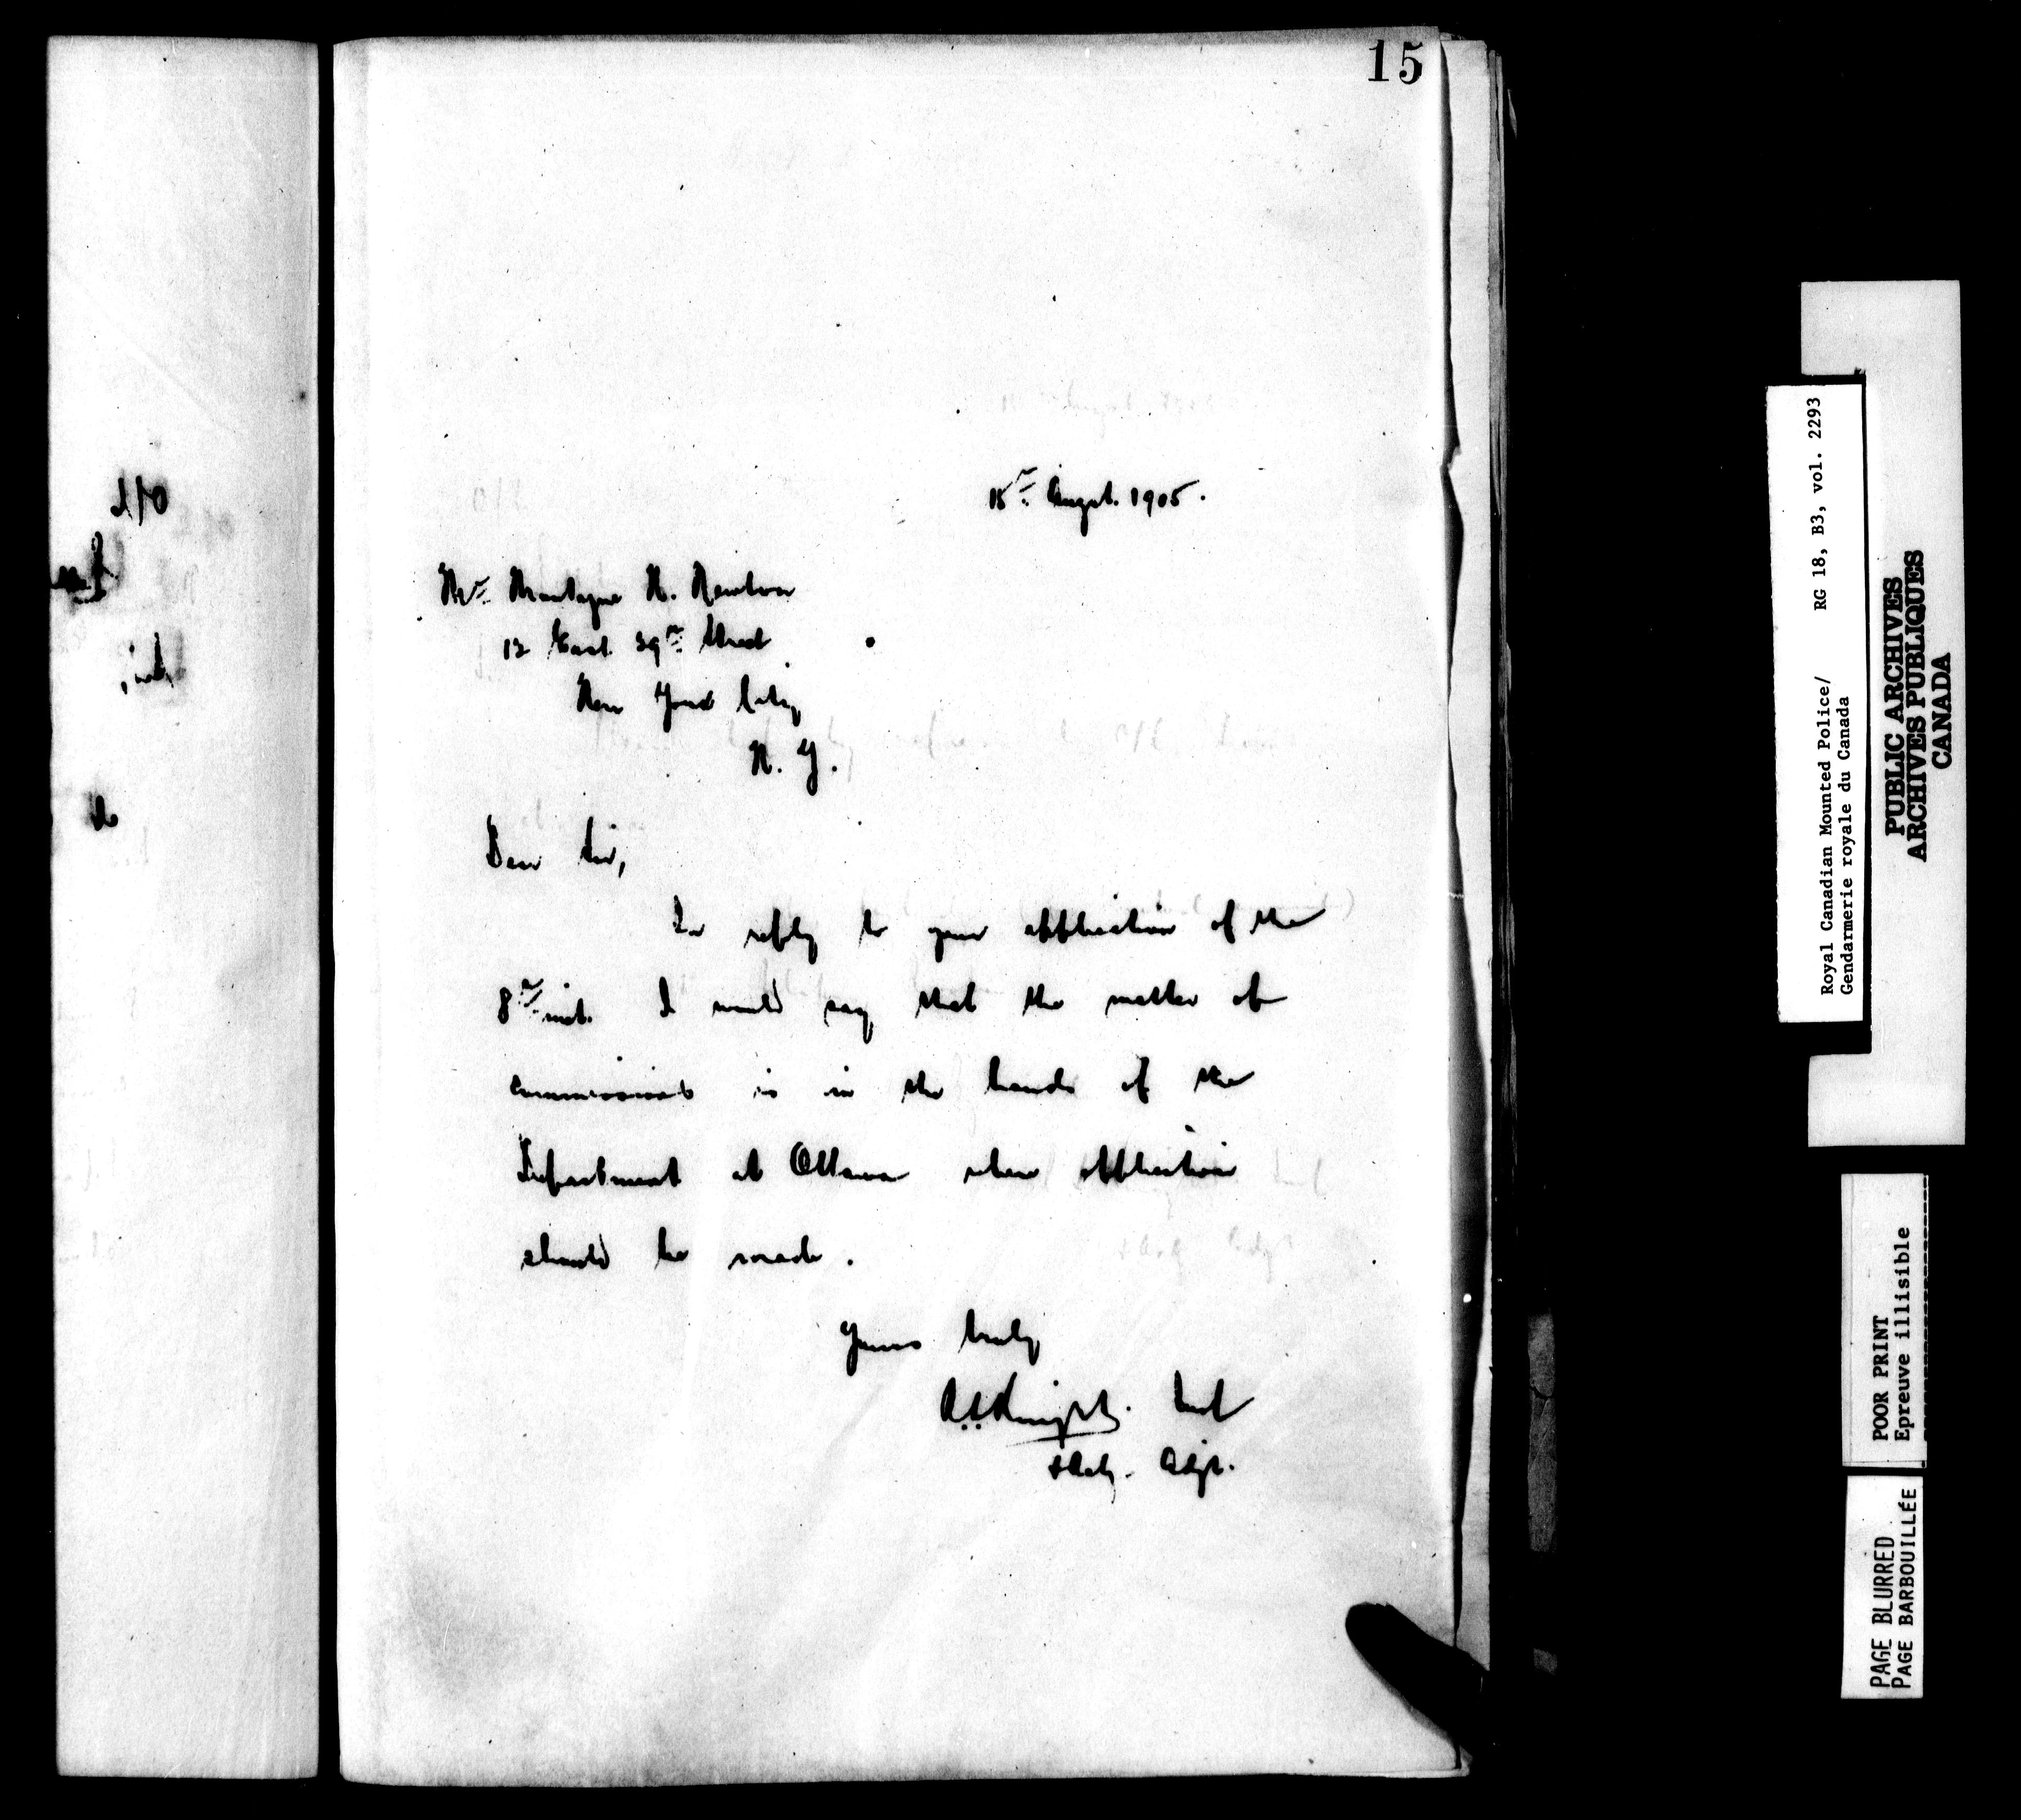 15
15th August. 1905.
Mr. Montague N. Newton
12 East 29th Street
New York City
N. Y.
Dear Sir,
In reply to your application of the
8th inst. I would say that the matter of
commissions is in the hands of the
Department at Ottawa where application
should be made.
Yours truly
Insp
Actg. Adjt.
Royal Canadian Mounted Police/ RG 18, B3, vol. 2293
Gendarmerie royale du Canada
PUBLIC ARCHIVES
ARCHIVES PUBLIQUES
CANADA
POOR PRINT
Epreuve illisible
PAGE BLURRED
PAGE BARBOUILLÉE